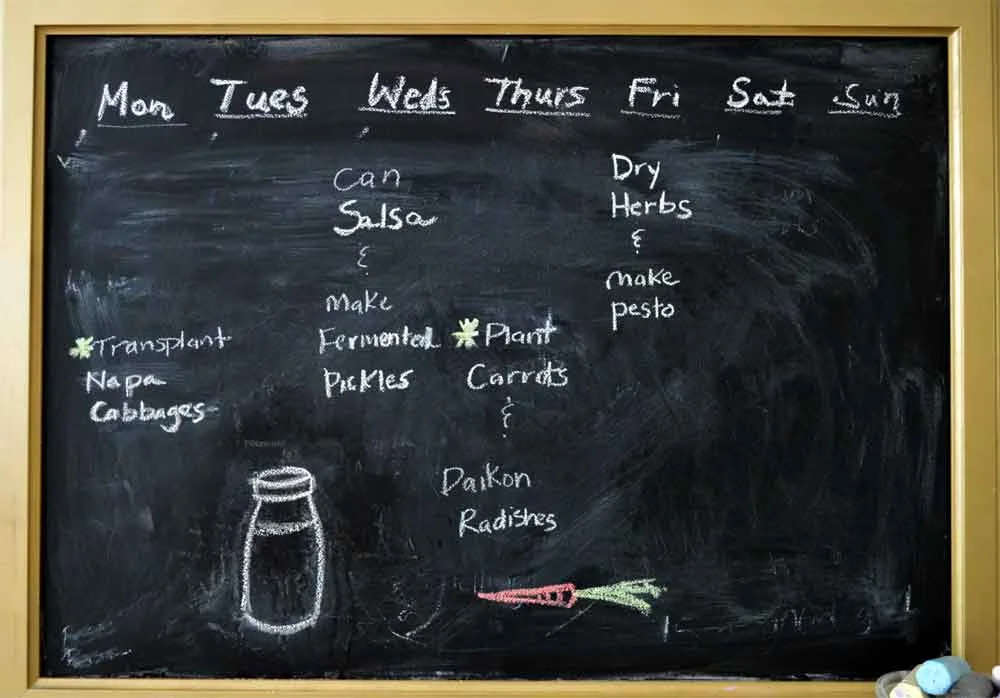 Mon Tues Weds Thurs Fri Sat Sun
*Transplant
Napa
Cabbages
Can
Salsa
&
make
Fermented
Pickles
*Plant
Carrots
&
Daikon
Radishes
Dry
Herbs
&
make
pesto